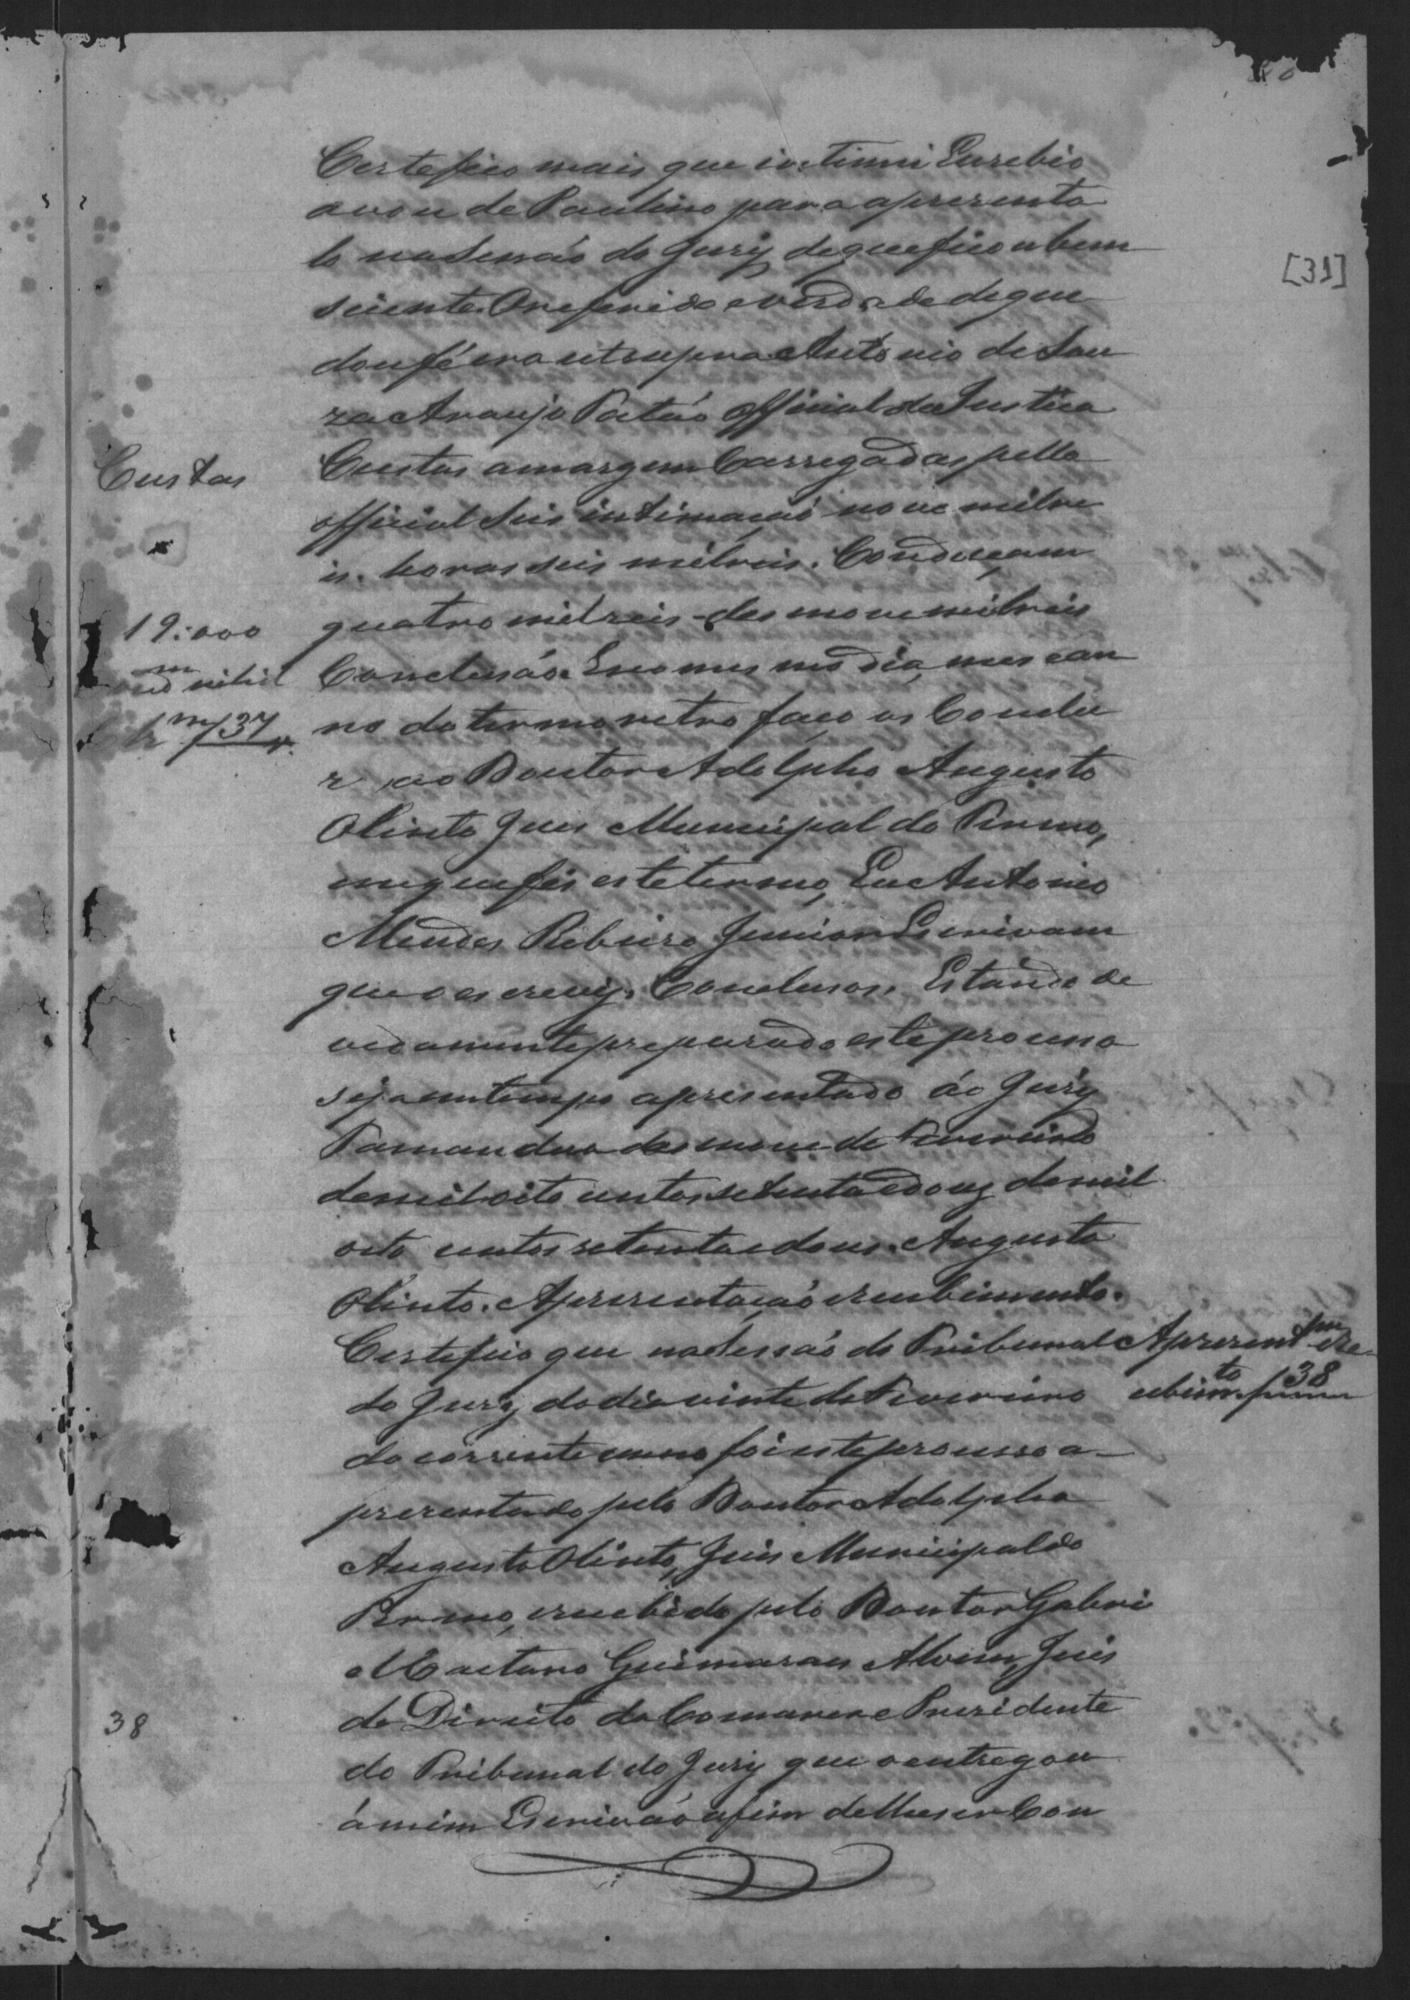 [31]
Certefico mais que intimei Eusebio
avou de Paulino para apresenta
lo na Sessão do Jury, de que ficou bem
sciente. O referido e verdade de que
dou fé era ut supra Antonio de Sou
za Araujo Patão Official de Justica
Custas
Custas a margem Carregadas pello
official seis intimação nove milre
is. horas seis milreis. Conducçam
19:000
quatro milreis - desnove milreis
Concluzão. E no mes mo dia, mes e an
no do termo retro faço os Conclu
37
z, ao Doutor Adolpho Augusto
Olinto Juis Municipal do Termo,
em que fis este termo, Eu Antonio
Mendes Ribeiro Junior Escrivam
que o escrevy. Conclusos. Estando de
vidamente preparado este processo
seja em tempo apresentado áo Jury
desnove de Fevereiro
de mil oito centos setenta e dous de mil
oito centos setenta e dous. Augusto
Olinto. Apresentação e recebimento.
Certefico que na Sessão do Tribunal
Apresentam e re-
cebimto 38
do Jury, do dia vinte de Fevereiro
do corrente anno foi este processo a-
presentado pelo Doutor Adolpho
Augusto Olinto, Juis Municipal do
Termo, e recebido pelo Doutor Gabri
el Caetano Guimaraes Alvim, Juis
de Direito da Comarca e Prezidente
38
do Tribunal do Jury que o entregou
á mim Escrivão afim de lhe ser Con